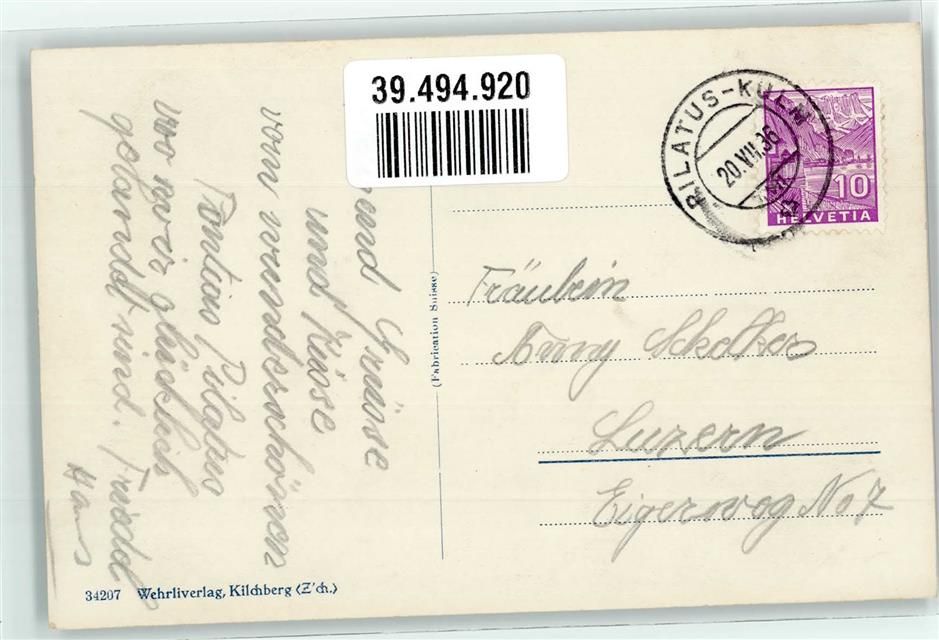 39.494.920
PILATUS-KULM
20.VII.36
10
HELVETIA
und Grüsse
und Küsse
vom wunderschönen
Pilatus
wo wir glücklich
gelandet sind.
Hans
(Fabrication Suisse)
Fräulein
Anny
Luzern
Eigerweg No 7
34207 Wehrliverlag, Kilchberg (Z'ch.)